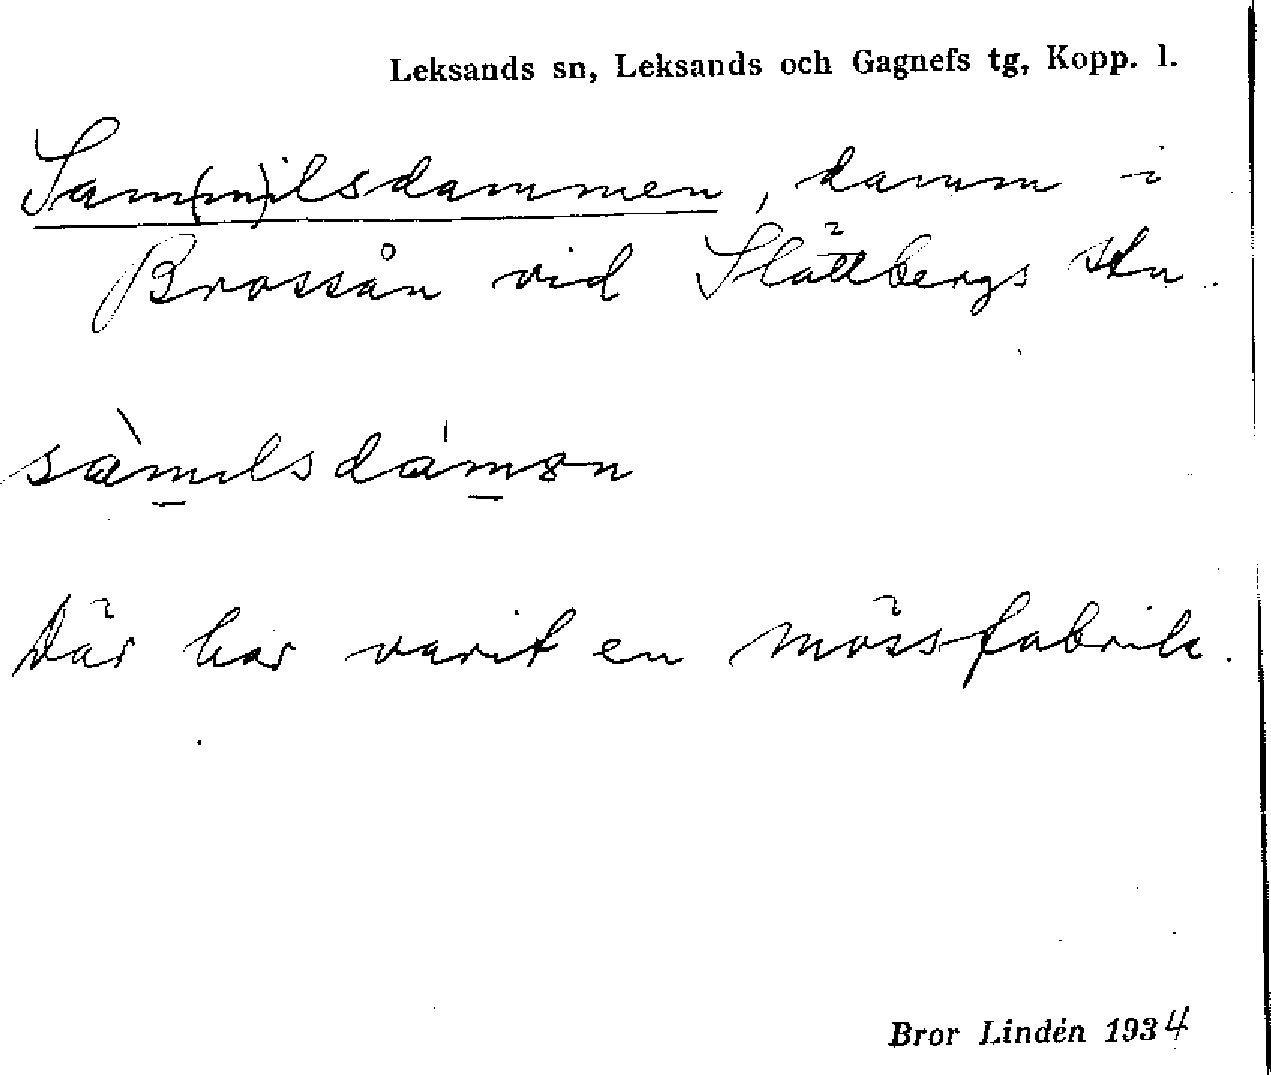 Leksands sn, Leksands och Gagnefs tg, Kopp. l.
Sam(m)ilsdammen, damm i
Brossån vid Slättbergs stn.
sàmilsdámən
Där har varit en mössfabrik.
Bror Lindén 1934